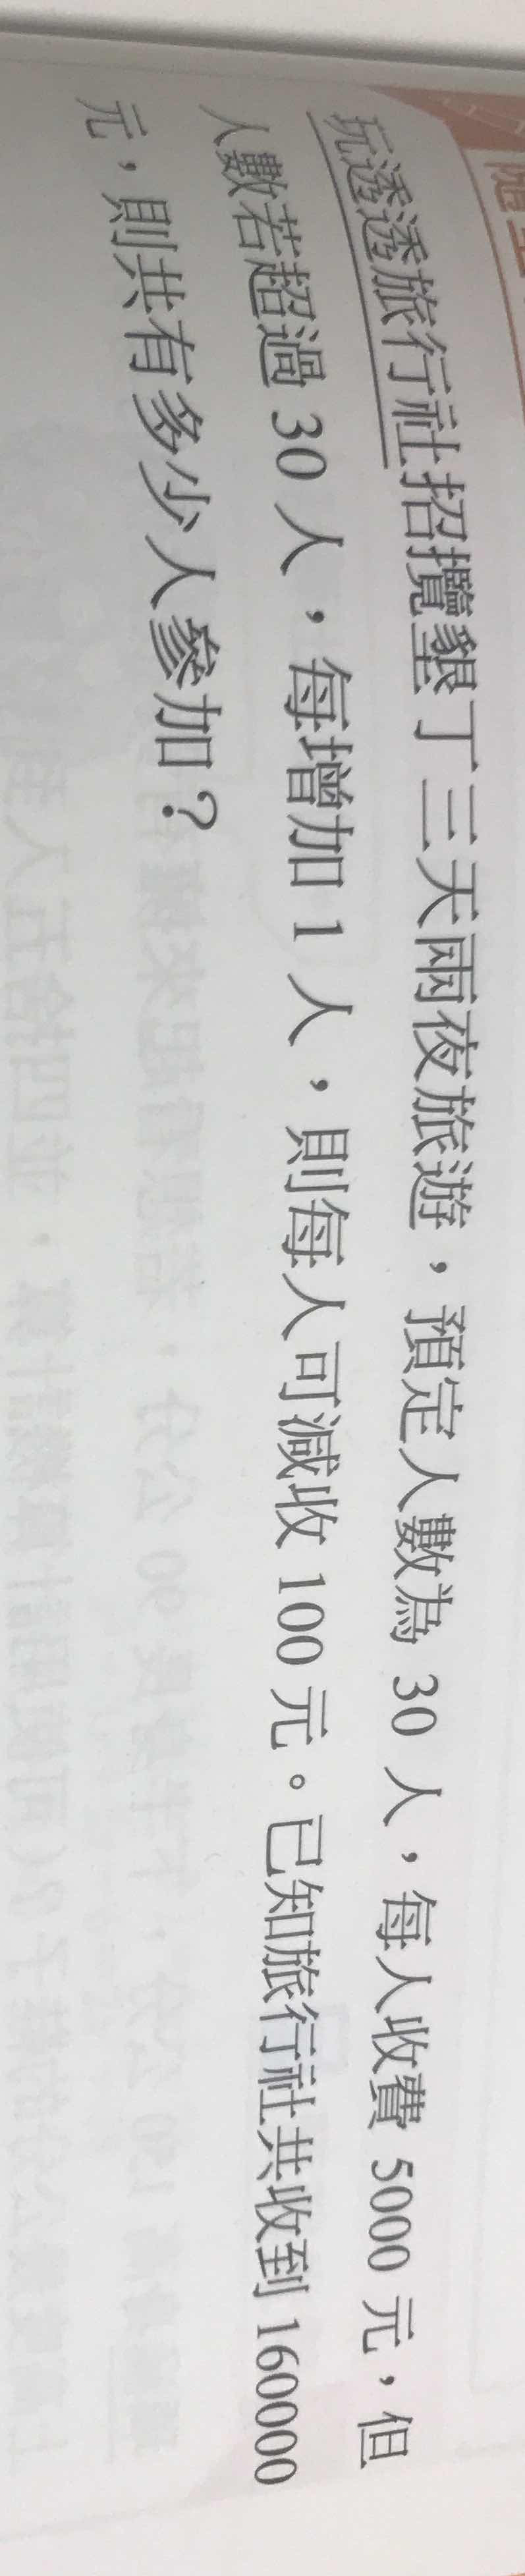 玩透透旅行社招攬墾丁三天兩夜旅遊，預定人數為 30 人，每人收費 5000 元，但
人數若超過 30 人，每增加 1 人，則每人可減收 100 元。已知旅行社共收到 160000
元，則共有多少人參加？